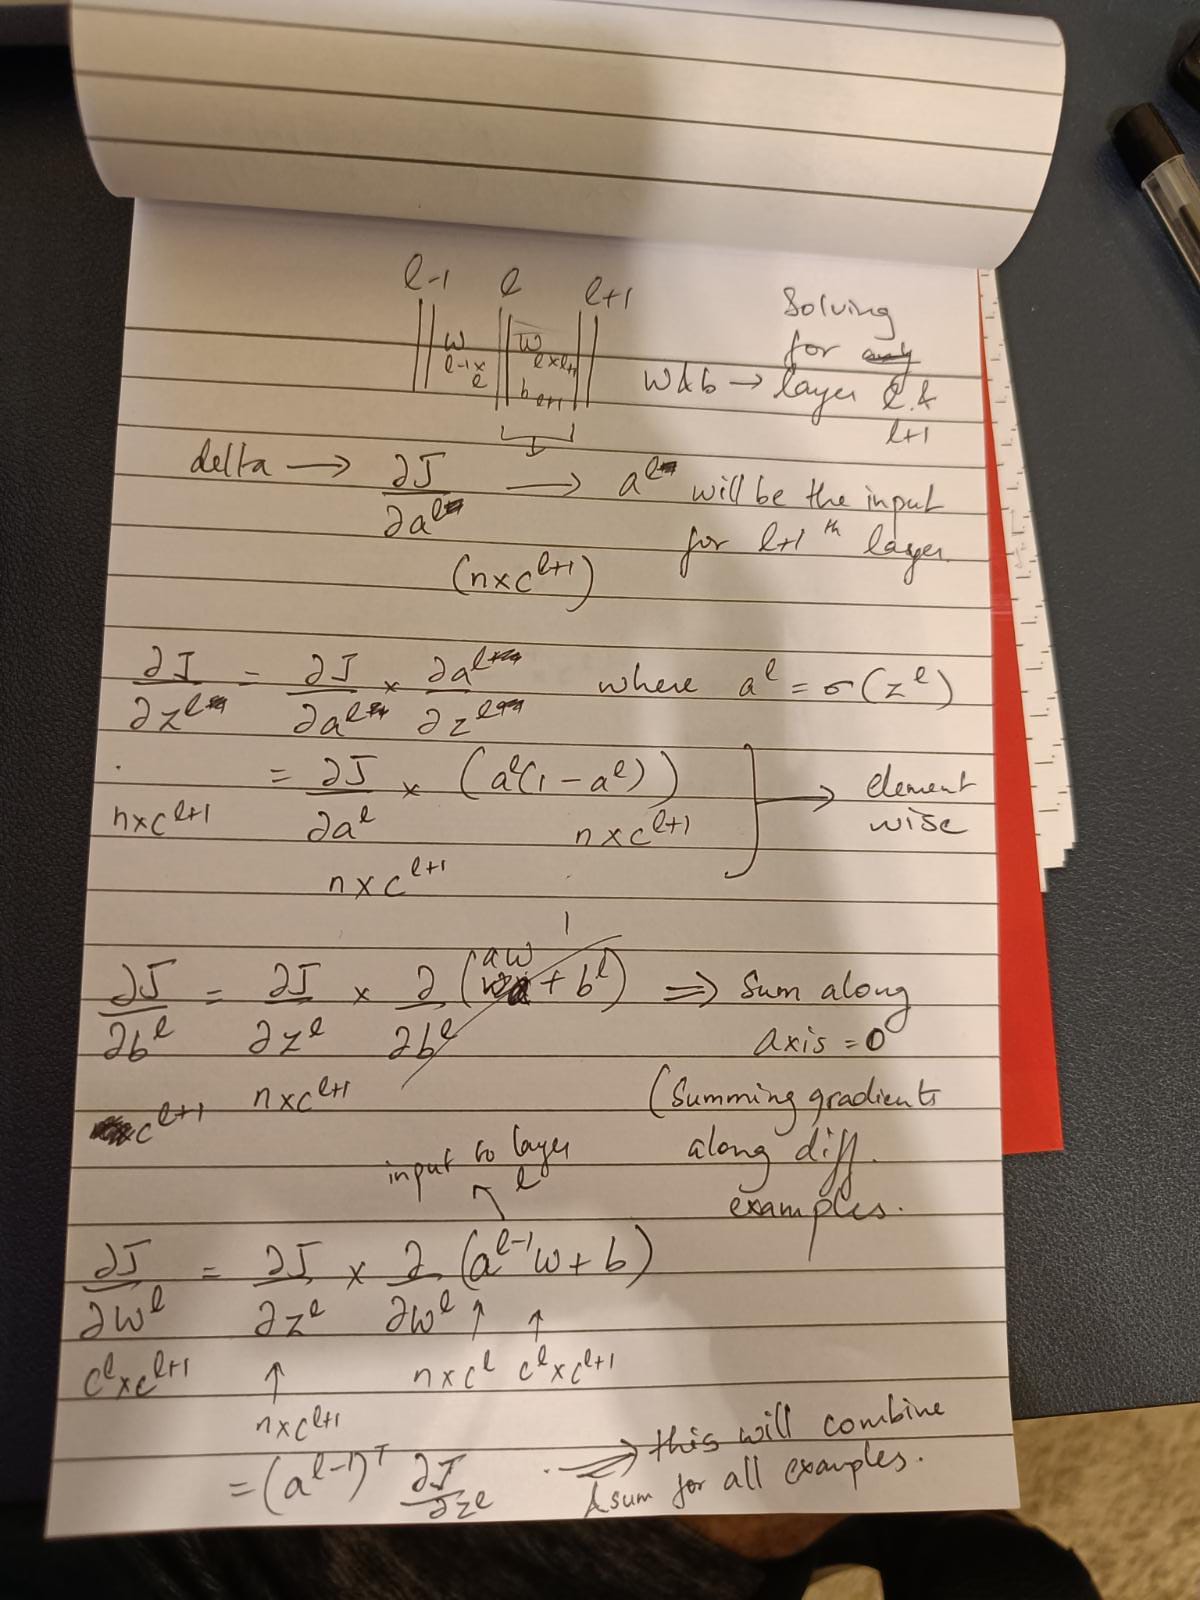 l-1 l l+1
w w
l-1 x l l x l+1
b l+1
Solving
for
w & b → layer l &
l+1
delta → ∂J/∂a^l → a^l will be the input
for l+1 th layer.
(n x c^{l+1})
∂J/∂z^l = ∂J/∂a^l x ∂a^l/∂z^l where a^l = σ(z^l)
= ∂J/∂a^l x (a^l(1 - a^l)) → element
wise
n x c^{l+1} n x c^{l+1} n x c^{l+1}
1
∂J/∂b^l = ∂J/∂z^l x ∂/∂b^l (aw + b^l) ⇒ Sum along
axis = 0
c^{l+1} n x c^{l+1} (Summing gradients
along diff.
examples.
input to layer
l
∂J/∂w^l = ∂J/∂z^l x ∂/∂w^l (a^{l-1} w + b)
c^l x c^{l+1} n x c^{l+1} n x c^l c^l x c^{l+1}
= (a^{l-1})^T ∂J/∂z^l ⇒ this will combine
& sum for all examples.